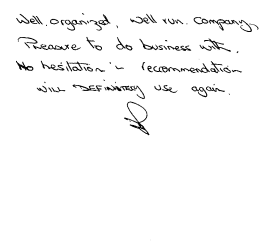 Well organized, well run company,
Pleasure to do business with.
No hesitation in recommendation
will DEFINITELY use again.